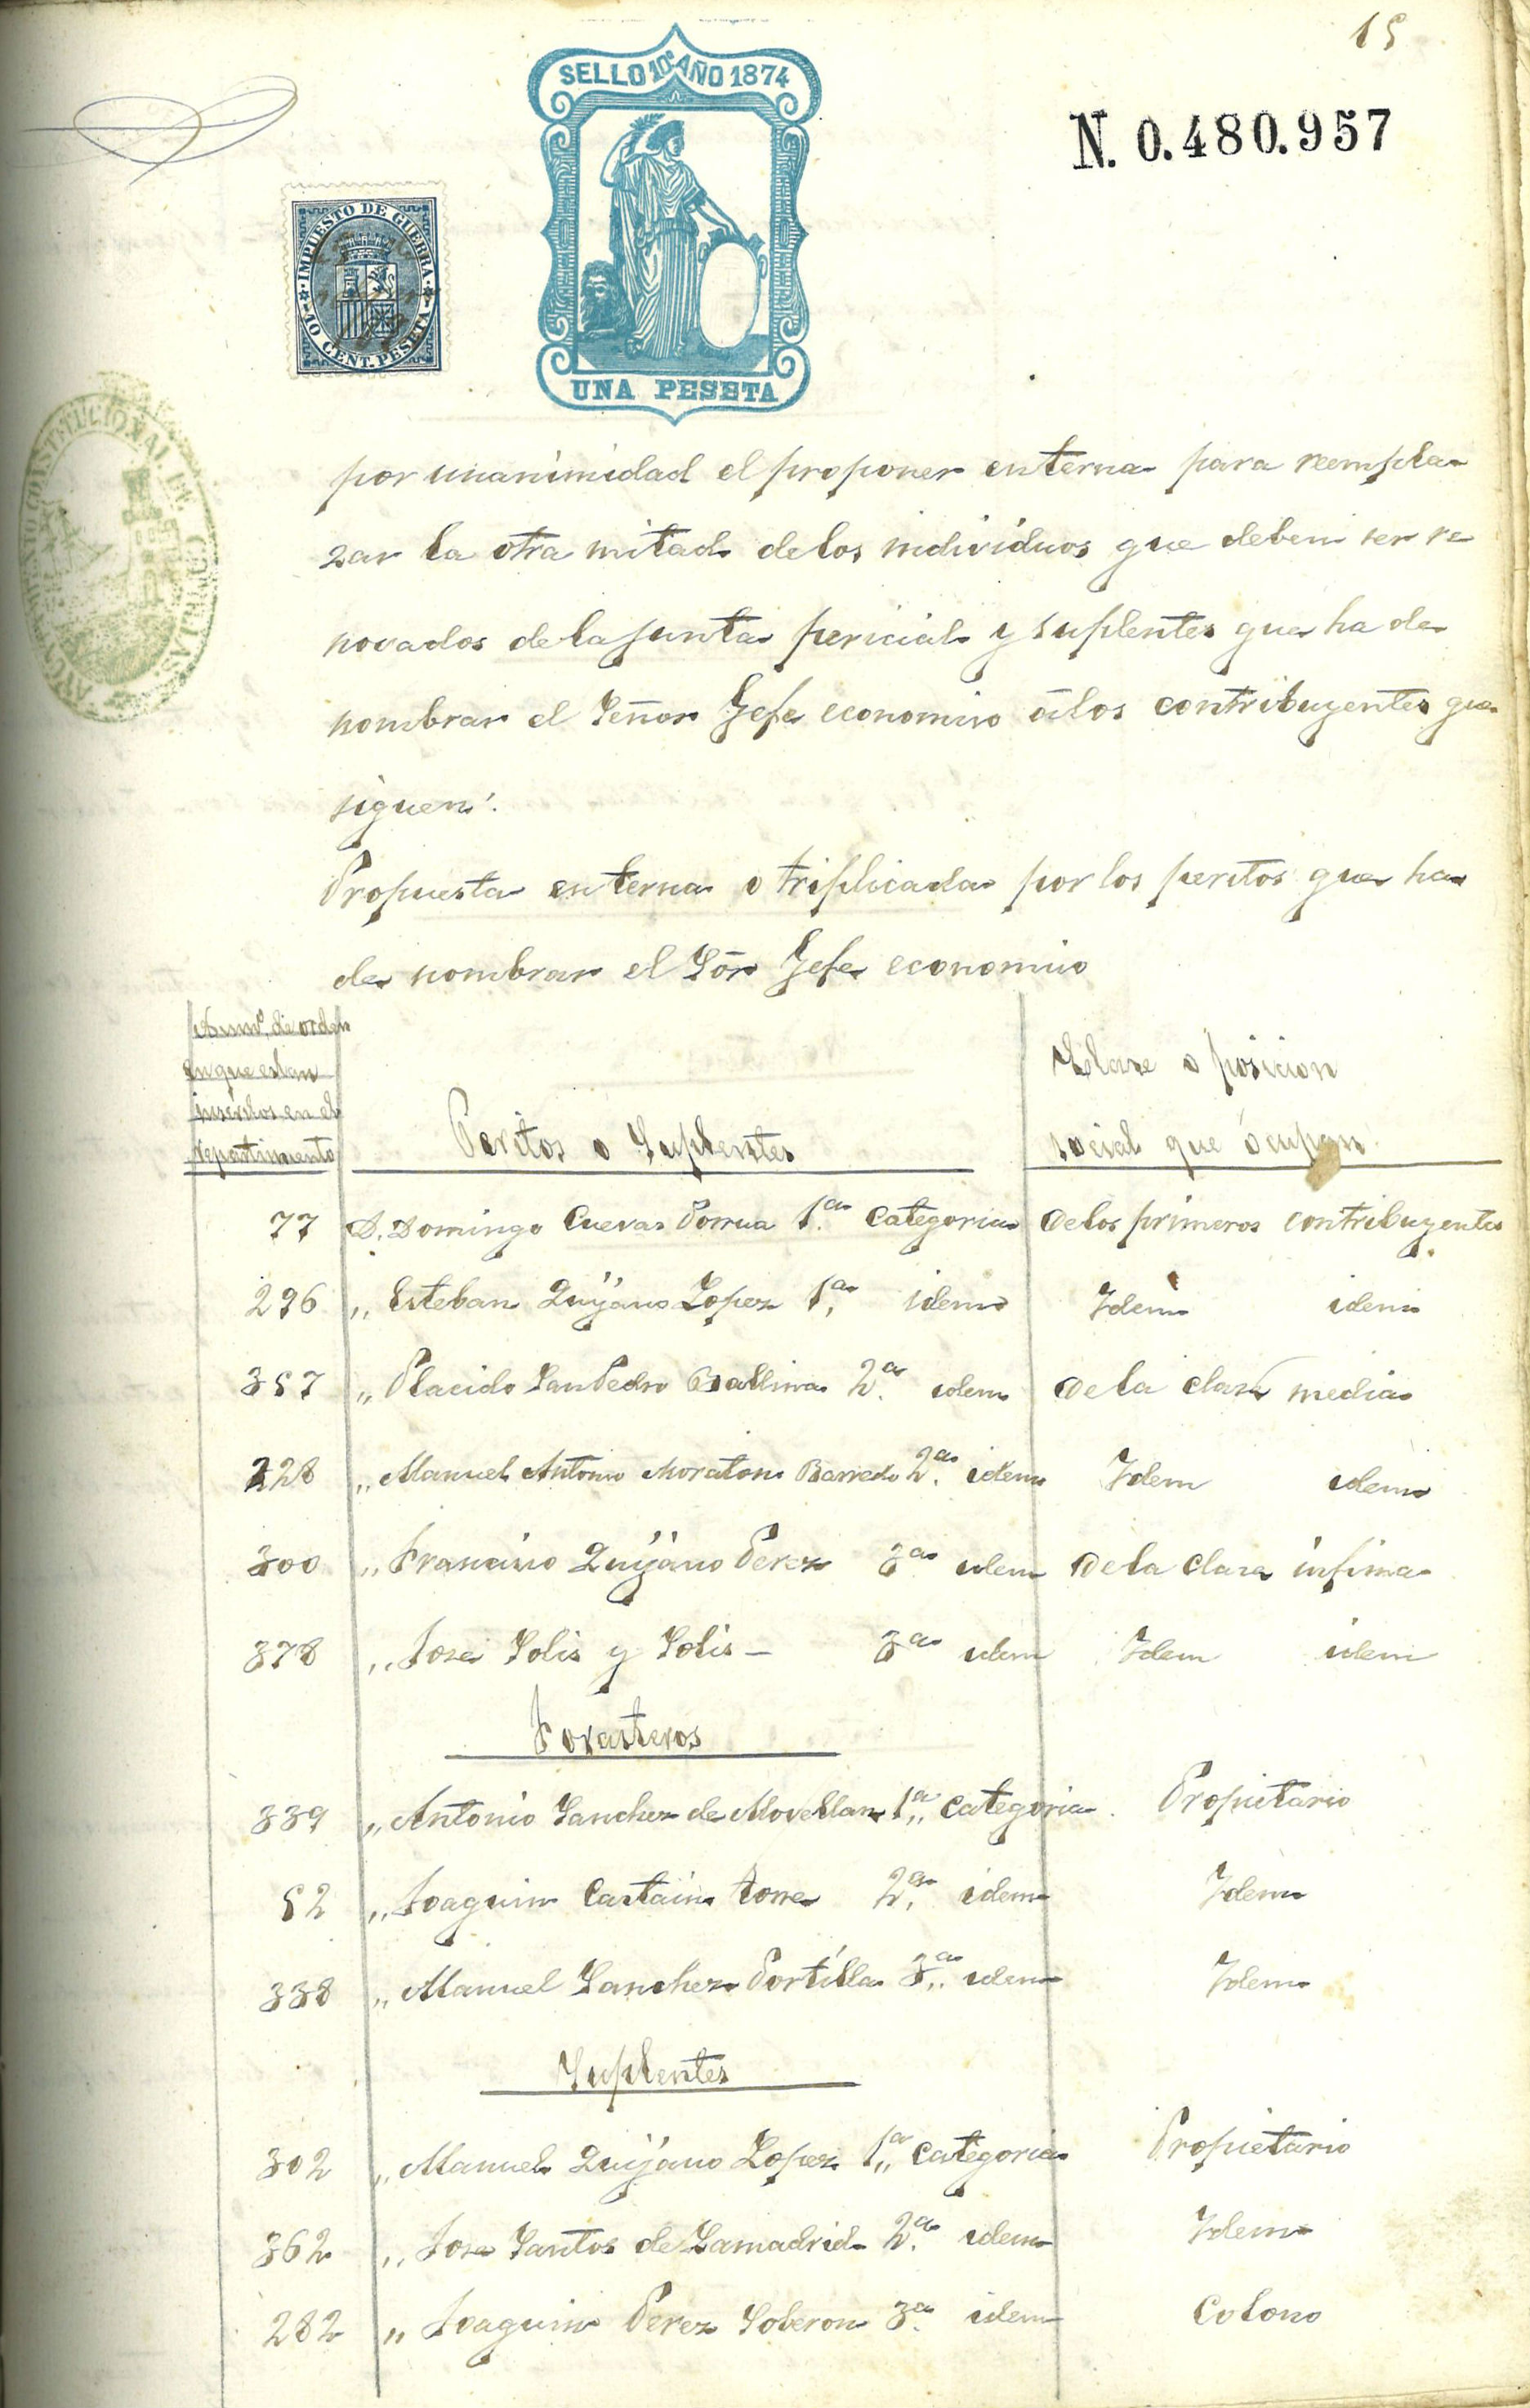 15
SELLO 10º AÑO 1874
N. 0.480.957
IMPUESTO DE GUERRA
10 CENT. PESETA
UNA PESETA
CONSTITUCIONAL DE
por unanimidad el proponer en terna para reempla
zar la otra mitad de los individuos que deben ser re
novados de la junta pericial y suplentes que ha de
nombrar el Señor Gefe economico á los contribuyentes que
siguen.
Propuesta en terna o triplicada por los peritos que ha
de nombrar el Sōr Gefe economico
Numº de orden
en que estan
inscritos en el
repartimiento
Peritos o Suplentes
Clase o posicion
social que ocupan
77 D. Domingo Cuevas Porrua 1.ª Categoria De los primeros contribuyentes
296 „ Esteban Quijano Lopez 1.ª idem Idem idem
357 „ Placido San Pedro Ballina 2.ª idem De la clase media
228 „ Manuel Antonio Moraton Barredo 2.ª idem Idem idem
300 „ Francisco Quijano Perez 3ª idem De la clase infima
378 „ Jose Solis y Solis — 3ª idem Idem idem
Forasteros
339 „ Antonio Sanchez de Movellan 1.ª Categoria Propietario
52 „ Joaquin Castain Torre 2.ª idem Idem
338 „ Manuel Sanchez Portilla 3.ª idem Idem
Suplentes
302 „ Manuel Quijano Lopez 1.ª Categoria Propietario
362 „ Jose Santos de Lamadrid 2.ª idem Idem
282 „ Joaquin Perez Soberon 3.ª idem Colono